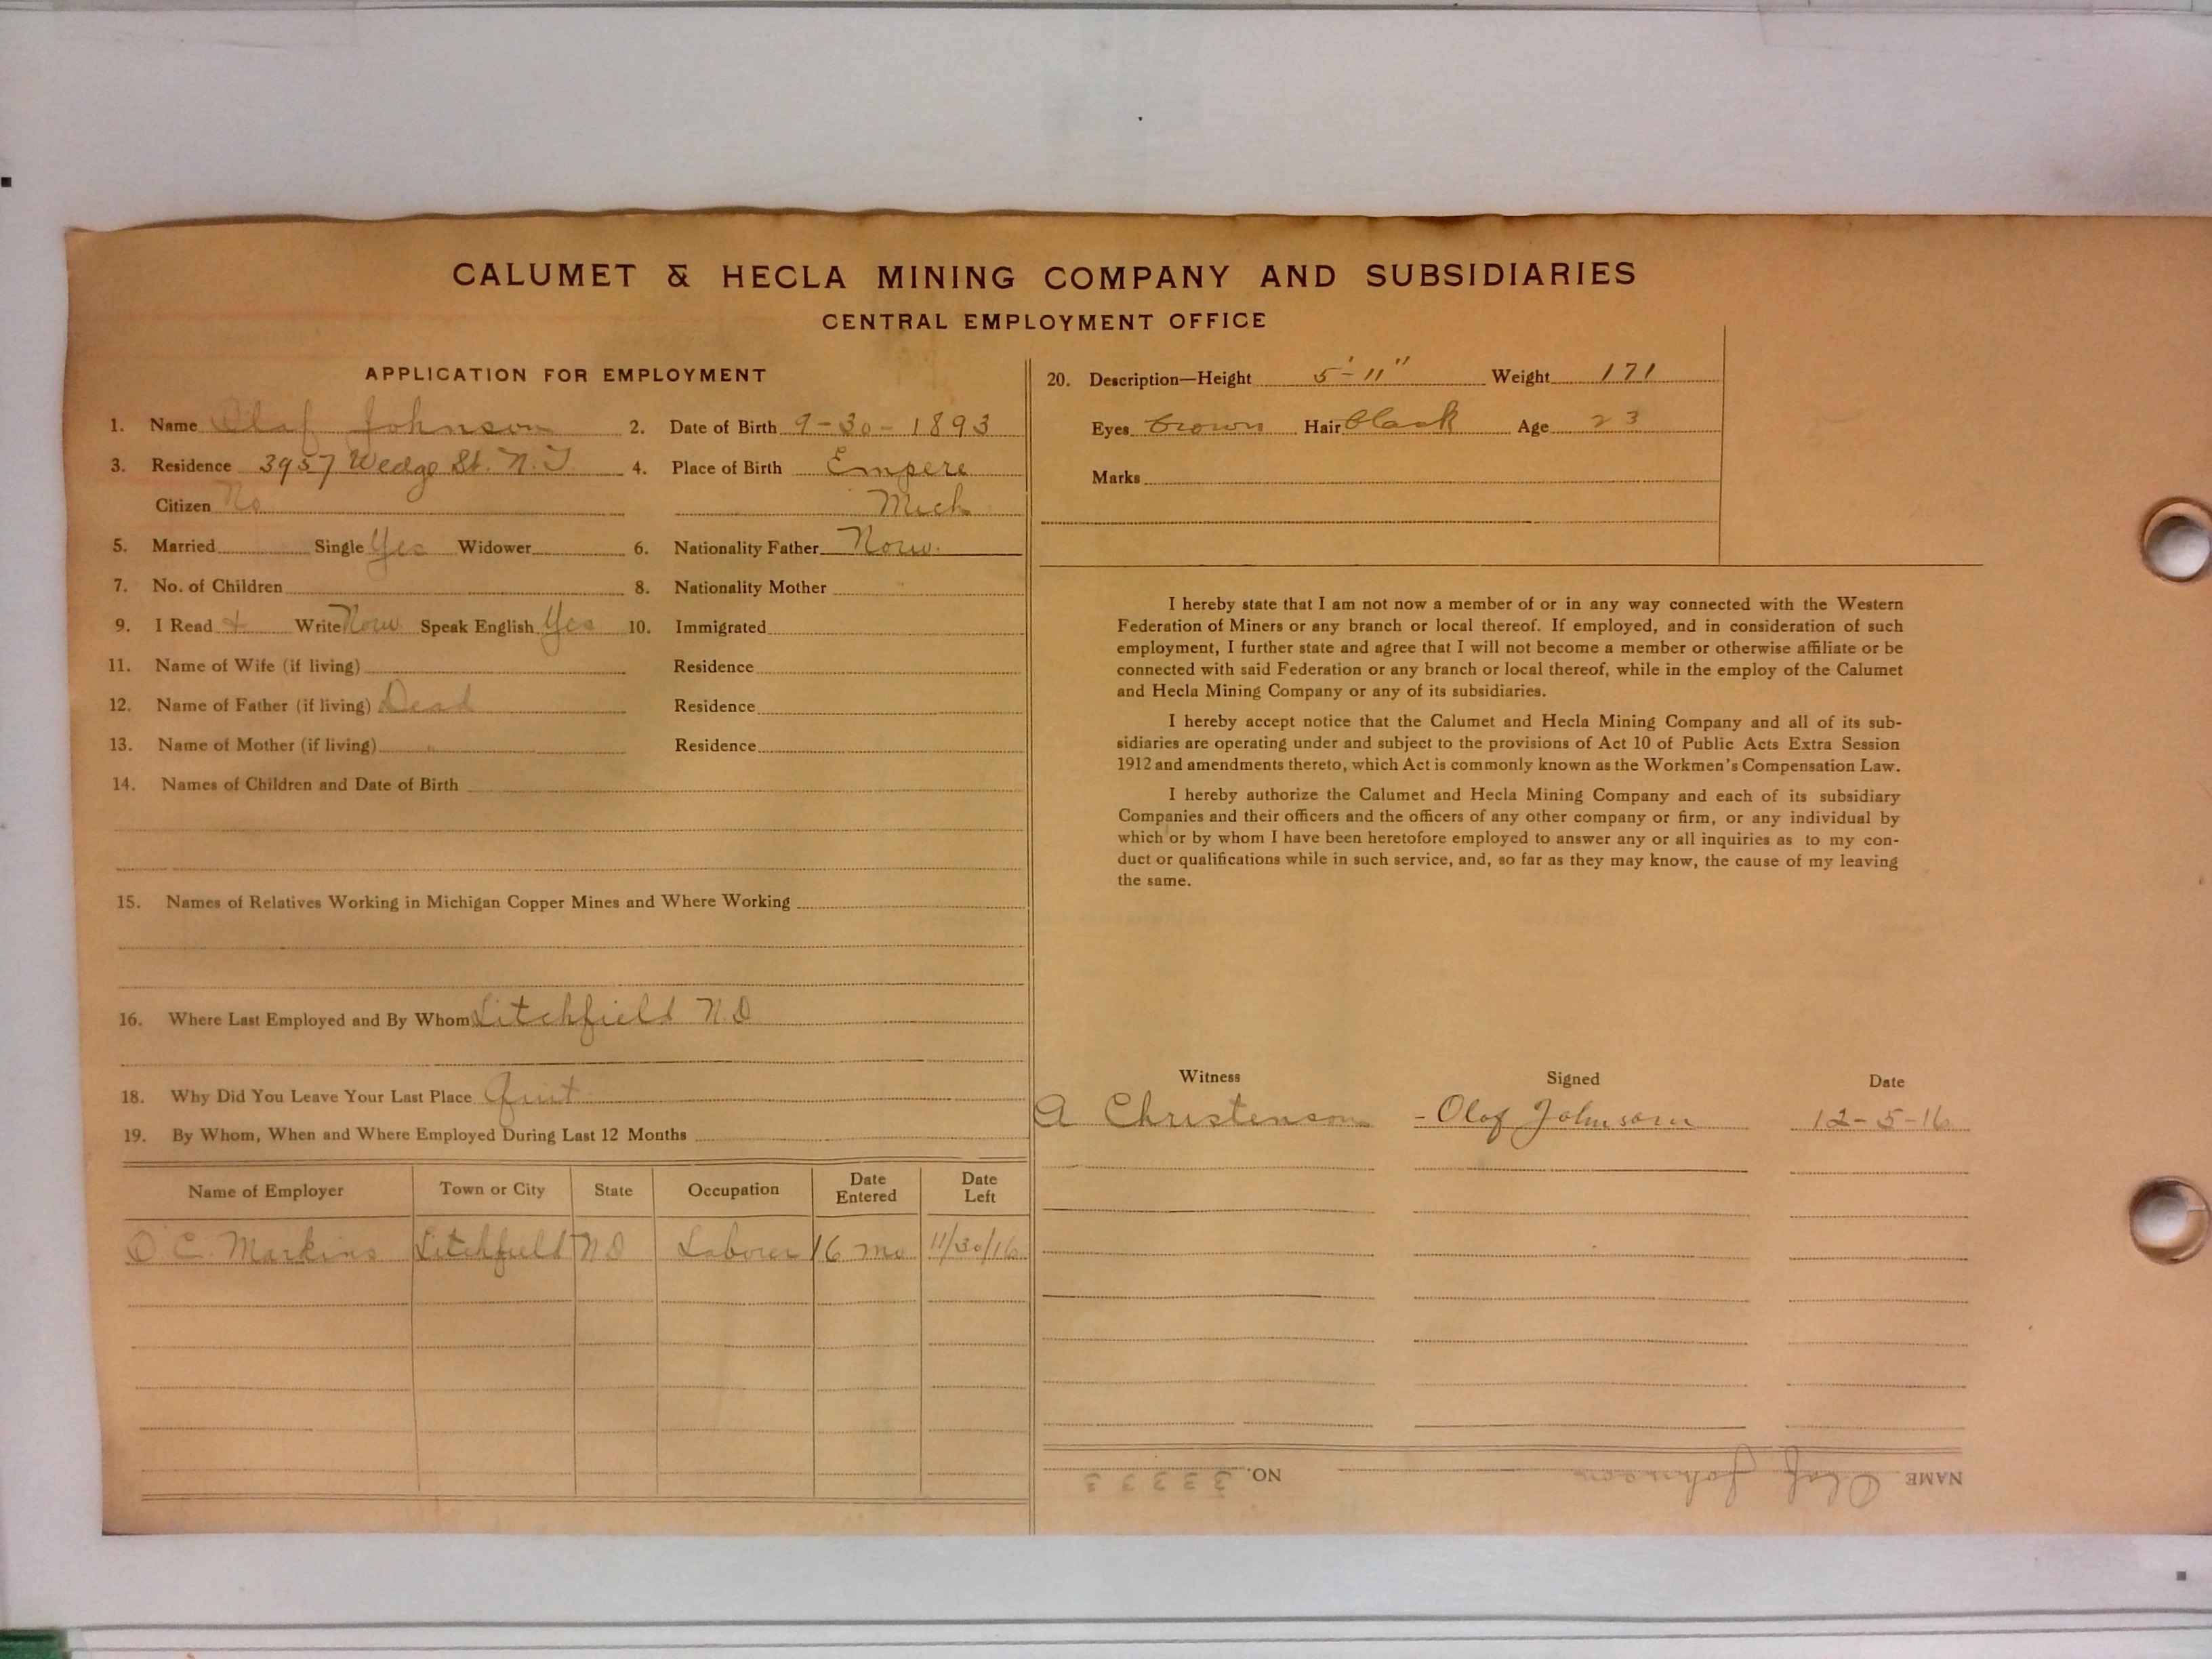 CALUMET & HECLA MINING COMPANY AND SUBSIDIARIES
CENTRAL EMPLOYMENT OFFICE
APPLICATION FOR EMPLOYMENT
1. Name Olaf Johnson 2. Date of Birth 9-30-1893
3. Residence 3957 Wedge St. N.T 4. Place of Birth Empere
Citizen No Mich
5. Married Single Yes Widower 6. Nationality Father Norw.
7. No. of Children 8. Nationality Mother
9. I Read + Write Norw Speak English Yes 10. Immigrated
11. Name of Wife (if living) Residence
12. Name of Father (if living) Dead Residence
13. Name of Mother (if living) " Residence
14. Names of Children and Date of Birth
15. Names of Relatives Working in Michigan Copper Mines and Where Working
16. Where Last Employed and By Whom Litchfield N.D
18. Why Did You Leave Your Last Place Quit
19. By Whom, When and Where Employed During Last 12 Months
Name of Employer Town or City State Occupation Date Entered Date Left
O. C. Markins Litchfield N D Laborer 16 mo 11/30/16
20. Description—Height 5'-11" Weight 171
Eyes brown Hair black Age 23
Marks
I hereby state that I am not now a member of or in any way connected with the Western
Federation of Miners or any branch or local thereof. If employed, and in consideration of such
employment, I further state and agree that I will not become a member or otherwise affiliate or be
connected with said Federation or any branch or local thereof, while in the employ of the Calumet
and Hecla Mining Company or any of its subsidiaries.
I hereby accept notice that the Calumet and Hecla Mining Company and all of its sub-
sidiaries are operating under and subject to the provisions of Act 10 of Public Acts Extra Session
1912 and amendments thereto, which Act is commonly known as the Workmen's Compensation Law.
I hereby authorize the Calumet and Hecla Mining Company and each of its subsidiary
Companies and their officers and the officers of any other company or firm, or any individual by
which or by whom I have been heretofore employed to answer any or all inquiries as to my con-
duct or qualifications while in such service, and, so far as they may know, the cause of my leaving
the same.
Witness Signed Date
A Christenson - Olof Johnson 12-5-16
NAME Olaf Johnson NO. 33333